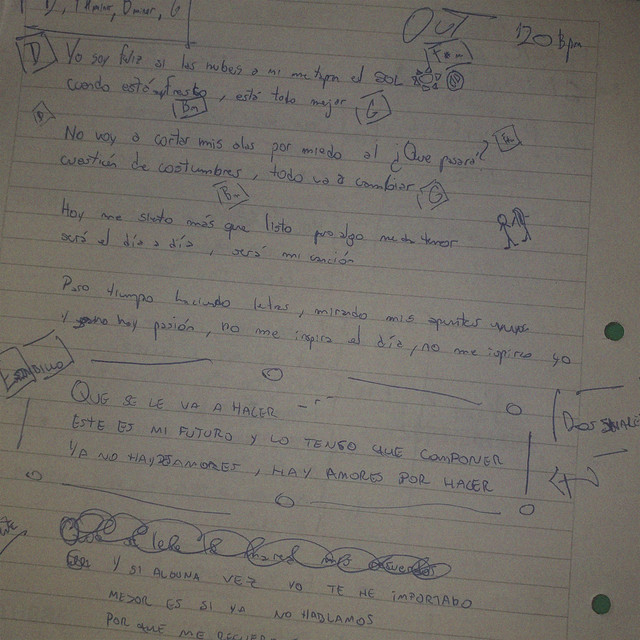 D, F#minor, Bminor, G
OUT 120 bpm
D Yo soy feliz si las nubes a mi me tapan el SOL F#m
cuando está fresko, está todo mejor
Bm G
No voy a cortar mis alas por miedo al ¿Que pasará?
cuestión de costumbres, todo va a cambiar
Bm G
Hoy me siento más que listo pero algo me da temor
será el día a día, será mi canción
Paso tiempo haciendo letras, mirando mis apuntes
Y no hay pasión, no me inspira el día, no me inspiro yo
QUE SE LE VA A HACER
ESTE ES MI FUTURO Y LO TENGO QUE COMPONER
YA NO HAY DESAMORES, HAY AMORES POR HACER
Y SI ALGUNA VEZ YO TE HE IMPORTADO
MEJOR ES SI YA NO HABLAMOS
POR QUE ME